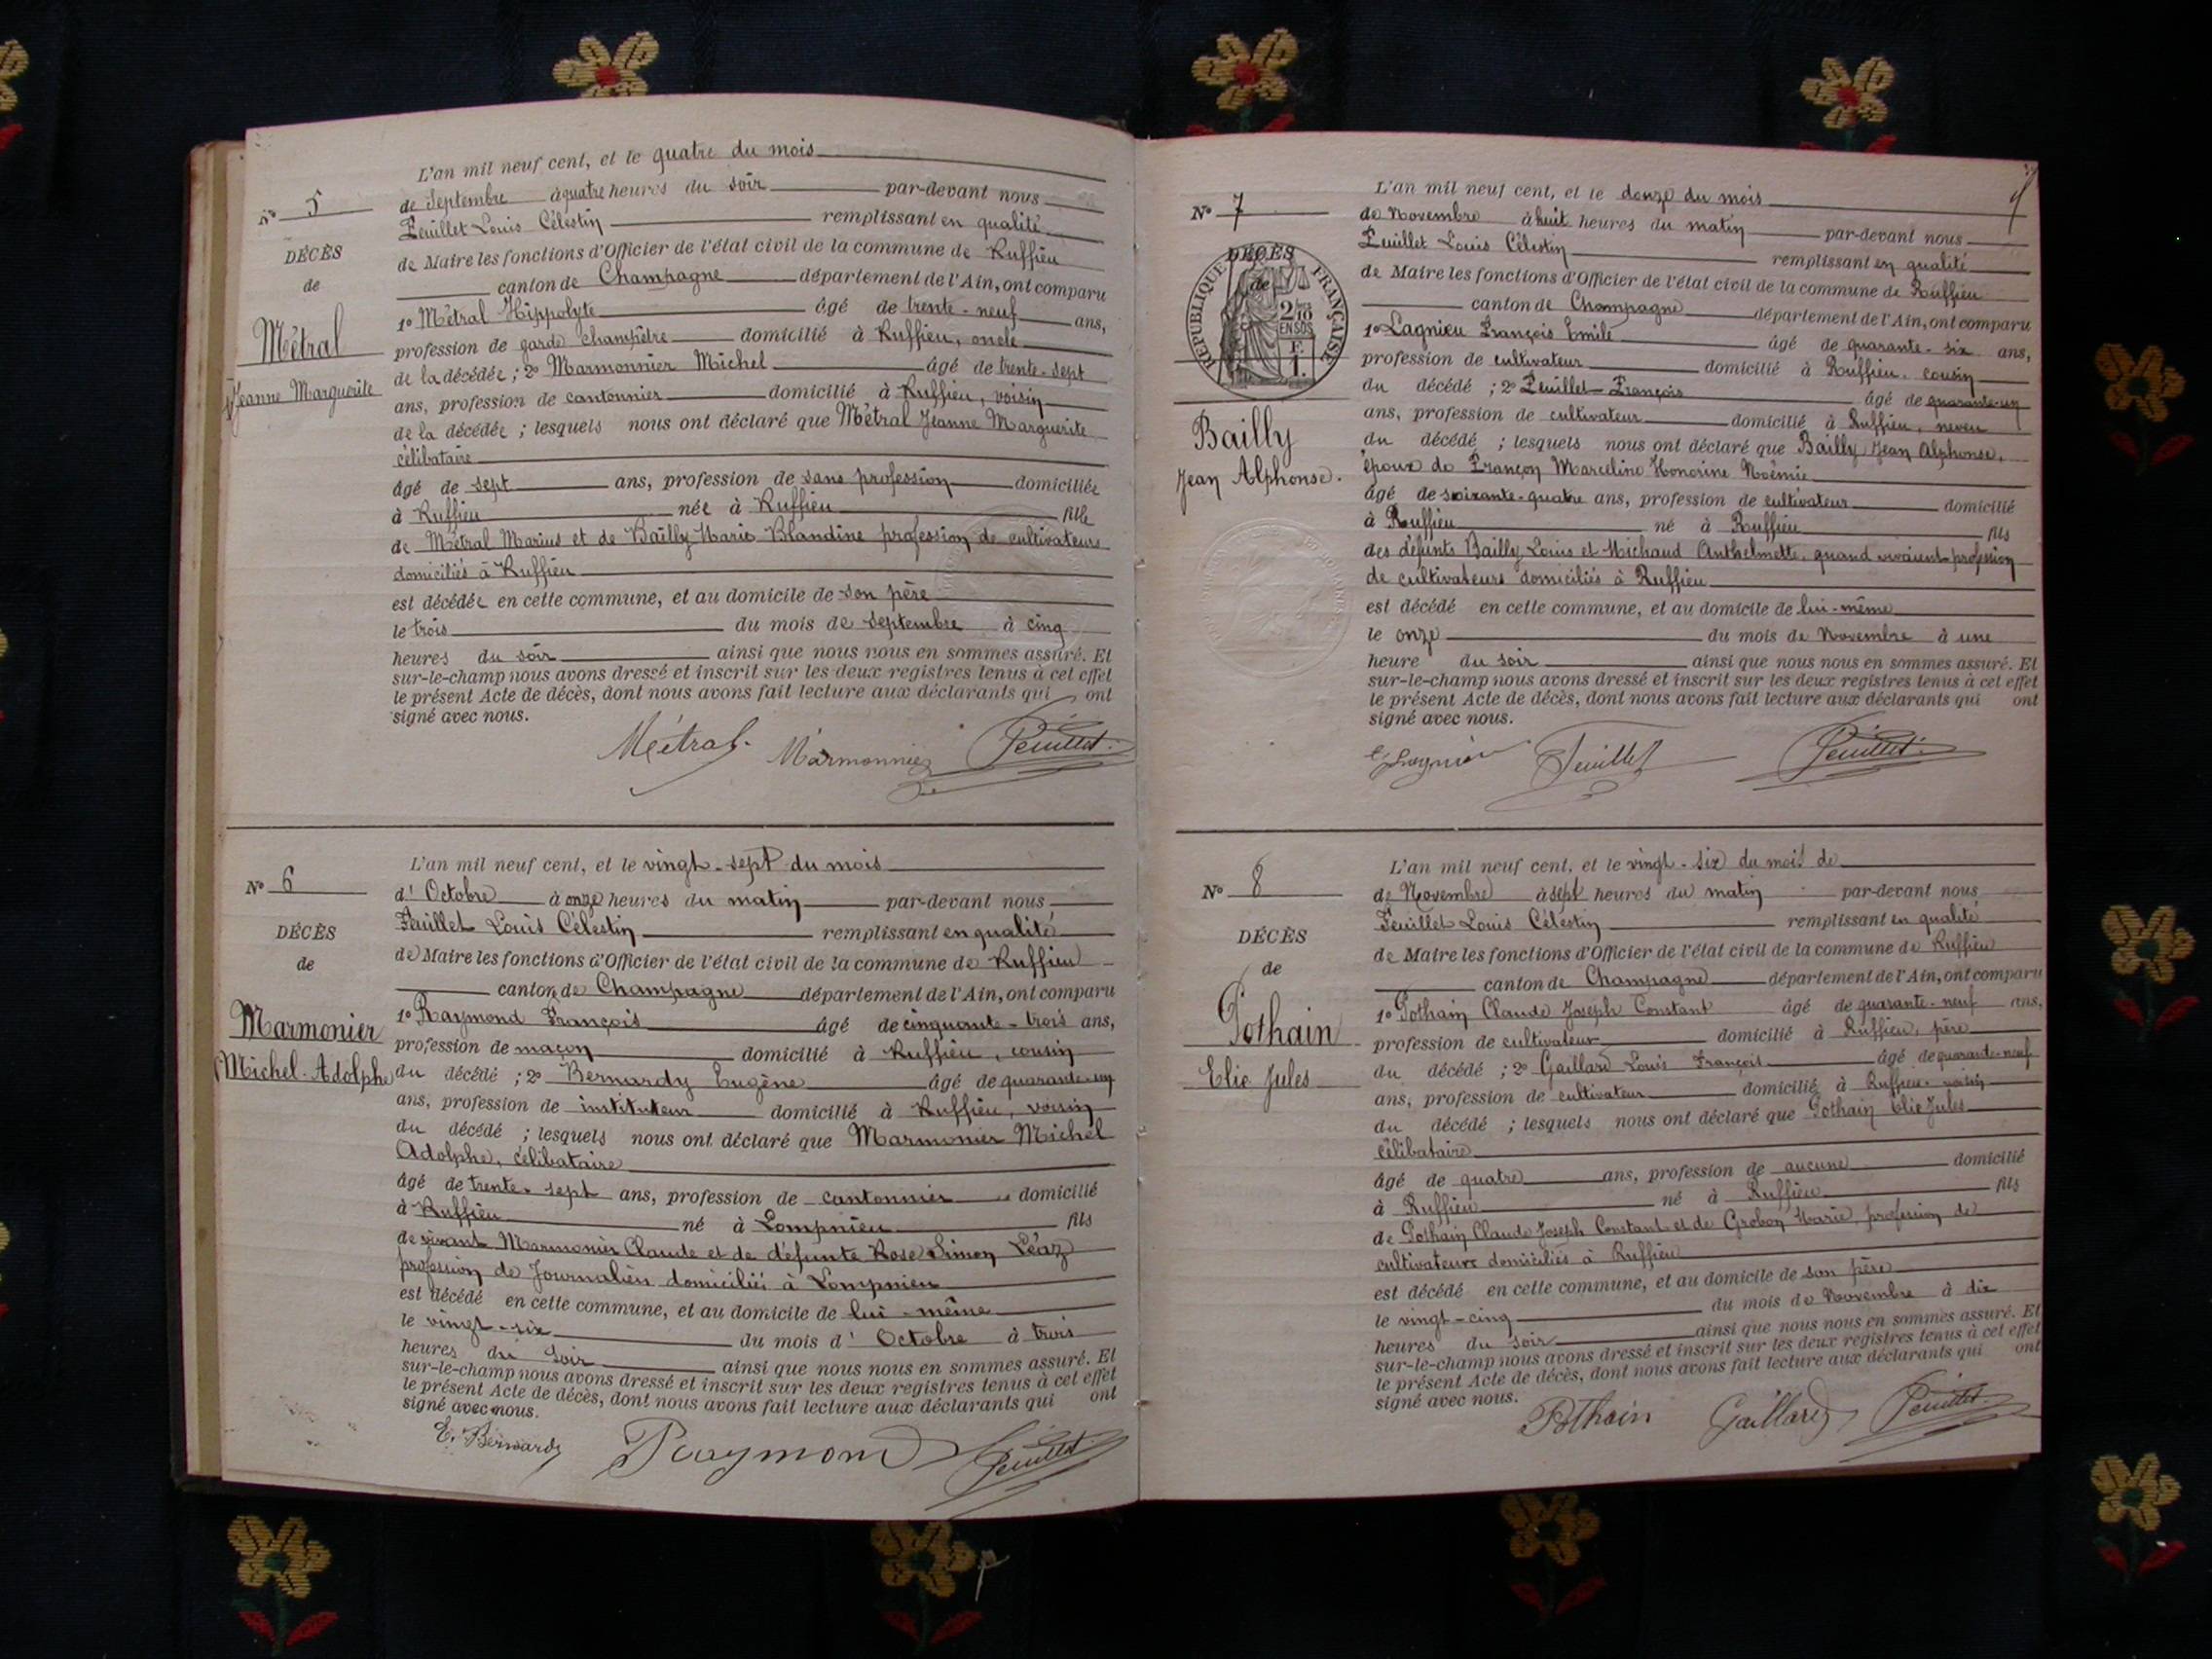 N° 5
DÉCÈS
de
Métral
Jeanne Marguerite
L'an mil neuf cent, et le quatre du mois
de Septembre à quatre heures du soir par-devant nous
Feuillet Louis Célestin remplissant en qualité
de Maire les fonctions d'Officier de l'état civil de la commune de Ruffieu
canton de Champagne département de l'Ain, ont comparu
1° Métral Hippolyte âgé de trente-neuf ans,
profession de garde champêtre domicilié à Ruffieu, oncle
de la décédée ; 2° Marmonnier Michel âgé de trente-sept
ans, profession de cantonnier domicilié à Ruffieu, voisin
de la décédée ; lesquels nous ont déclaré que Métral Jeanne Marguerite
célibataire
âgé de sept ans, profession de sans profession domiciliée
à Ruffieu née à Ruffieu fille
de Métral Marius et de Bailly Marie Blandine profession de cultivateurs
domiciliés à Ruffieu
est décédée en cette commune, et au domicile de son père
le trois du mois de Septembre à cinq
heures du soir ainsi que nous nous en sommes assuré. Et
sur-le-champ nous avons dressé et inscrit sur les deux registres tenus à cet effet
le présent Acte de décès, dont nous avons fait lecture aux déclarants qui ont
signé avec nous.
Métral Marmonnier Feuillet
N° 6
DÉCÈS
de
Marmonier
Michel-Adolphe
L'an mil neuf cent, et le vingt-sept du mois
d'Octobre à onze heures du matin par-devant nous
Feuillet Louis Célestin remplissant en qualité
de Maire les fonctions d'Officier de l'état civil de la commune de Ruffieu
canton de Champagne département de l'Ain, ont comparu
1° Raymond François âgé de cinquante-trois ans,
profession de maçon domicilié à Ruffieu, cousin
du décédé ; 2° Bernardy Eugène âgé de quarante-un
ans, profession de instituteur domicilié à Ruffieu, voisin
du décédé ; lesquels nous ont déclaré que Marmonier Michel
Adolphe, célibataire
âgé de trente-sept ans, profession de cantonnier domicilié
à Ruffieu né à Lompnieu fils
de vivant Marmonier Claude et de défunte Rose Simon Léaz
profession de Journalier domiciliés à Lompnieu
est décédé en cette commune, et au domicile de lui-même
le vingt-six du mois d'Octobre à trois
heures du soir ainsi que nous nous en sommes assuré. Et
sur-le-champ nous avons dressé et inscrit sur les deux registres tenus à cet effet
le présent Acte de décès, dont nous avons fait lecture aux déclarants qui ont
signé avec nous.
E. Bernardy Raymond Feuillet
N° 7
DÉCÈS
de
REPUBLIQUE FRANÇAISE
2/10 EN SUS
F. 1.
Bailly
Jean Alphonse.
L'an mil neuf cent, et le douze du mois
de Novembre à huit heures du matin par-devant nous
Feuillet Louis Célestin remplissant en qualité
de Maire les fonctions d'Officier de l'état civil de la commune de Ruffieu
canton de Champagne département de l'Ain, ont comparu
1° Lagnieu François Emile âgé de quarante-six ans,
profession de cultivateur domicilié à Ruffieu, cousin
du décédé ; 2° Feuillet François âgé de quarante-un
ans, profession de cultivateur domicilié à Ruffieu, neveu
du décédé ; lesquels nous ont déclaré que Bailly Jean Alphonse,
époux de Françon Marceline Honorine Noémie
âgé de soixante-quatre ans, profession de cultivateur domicilié
à Ruffieu né à Ruffieu fils
des défunts Bailly Louis et Michaud Anthelmette, quand vivaient profession
de cultivateurs domiciliés à Ruffieu
est décédé en cette commune, et au domicile de lui-même
le onze du mois de Novembre à une
heure du soir ainsi que nous nous en sommes assuré. Et
sur-le-champ nous avons dressé et inscrit sur les deux registres tenus à cet effet
le présent Acte de décès, dont nous avons fait lecture aux déclarants qui ont
signé avec nous.
Lagnieu Feuillet Feuillet
N° 8
DÉCÈS
de
Pothain
Elie Jules
L'an mil neuf cent, et le vingt-six du mois de
de Novembre à sept heures du matin par-devant nous
Feuillet Louis Célestin remplissant en qualité
de Maire les fonctions d'Officier de l'état civil de la commune de Ruffieu
canton de Champagne département de l'Ain, ont comparu
1° Pothain Claude Joseph Constant âgé de quarante-neuf ans,
profession de cultivateur domicilié à Ruffieu, père
du décédé ; 2° Gaillard Louis François âgé de quarante-neuf
ans, profession de cultivateur domicilié à Ruffieu, voisin
du décédé ; lesquels nous ont déclaré que Pothain Elie Jules
célibataire
âgé de quatre ans, profession de aucune domicilié
à Ruffieu né à Ruffieu fils
de Pothain Claude Joseph Constant et de Grobon Marie, profession de
cultivateurs domiciliés à Ruffieu
est décédé en cette commune, et au domicile de son père
le vingt-cinq du mois de Novembre à dix
heures du soir ainsi que nous nous en sommes assuré. Et
sur-le-champ nous avons dressé et inscrit sur les deux registres tenus à cet effet
le présent Acte de décès, dont nous avons fait lecture aux déclarants qui ont
signé avec nous.
Pothain Gaillard Feuillet